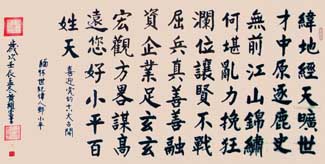 緯地經天曠世
才中原逐鹿史
無前江山錦繡
何堪亂力挽狂
瀾位讓賢不戰
屈兵真善善融
資企業足玄玄
宏觀方畧謀高
遠您好小平百
姓天
喜迎党的十八大召開
緬怀世紀偉人鄧小平
歲次壬辰長春人